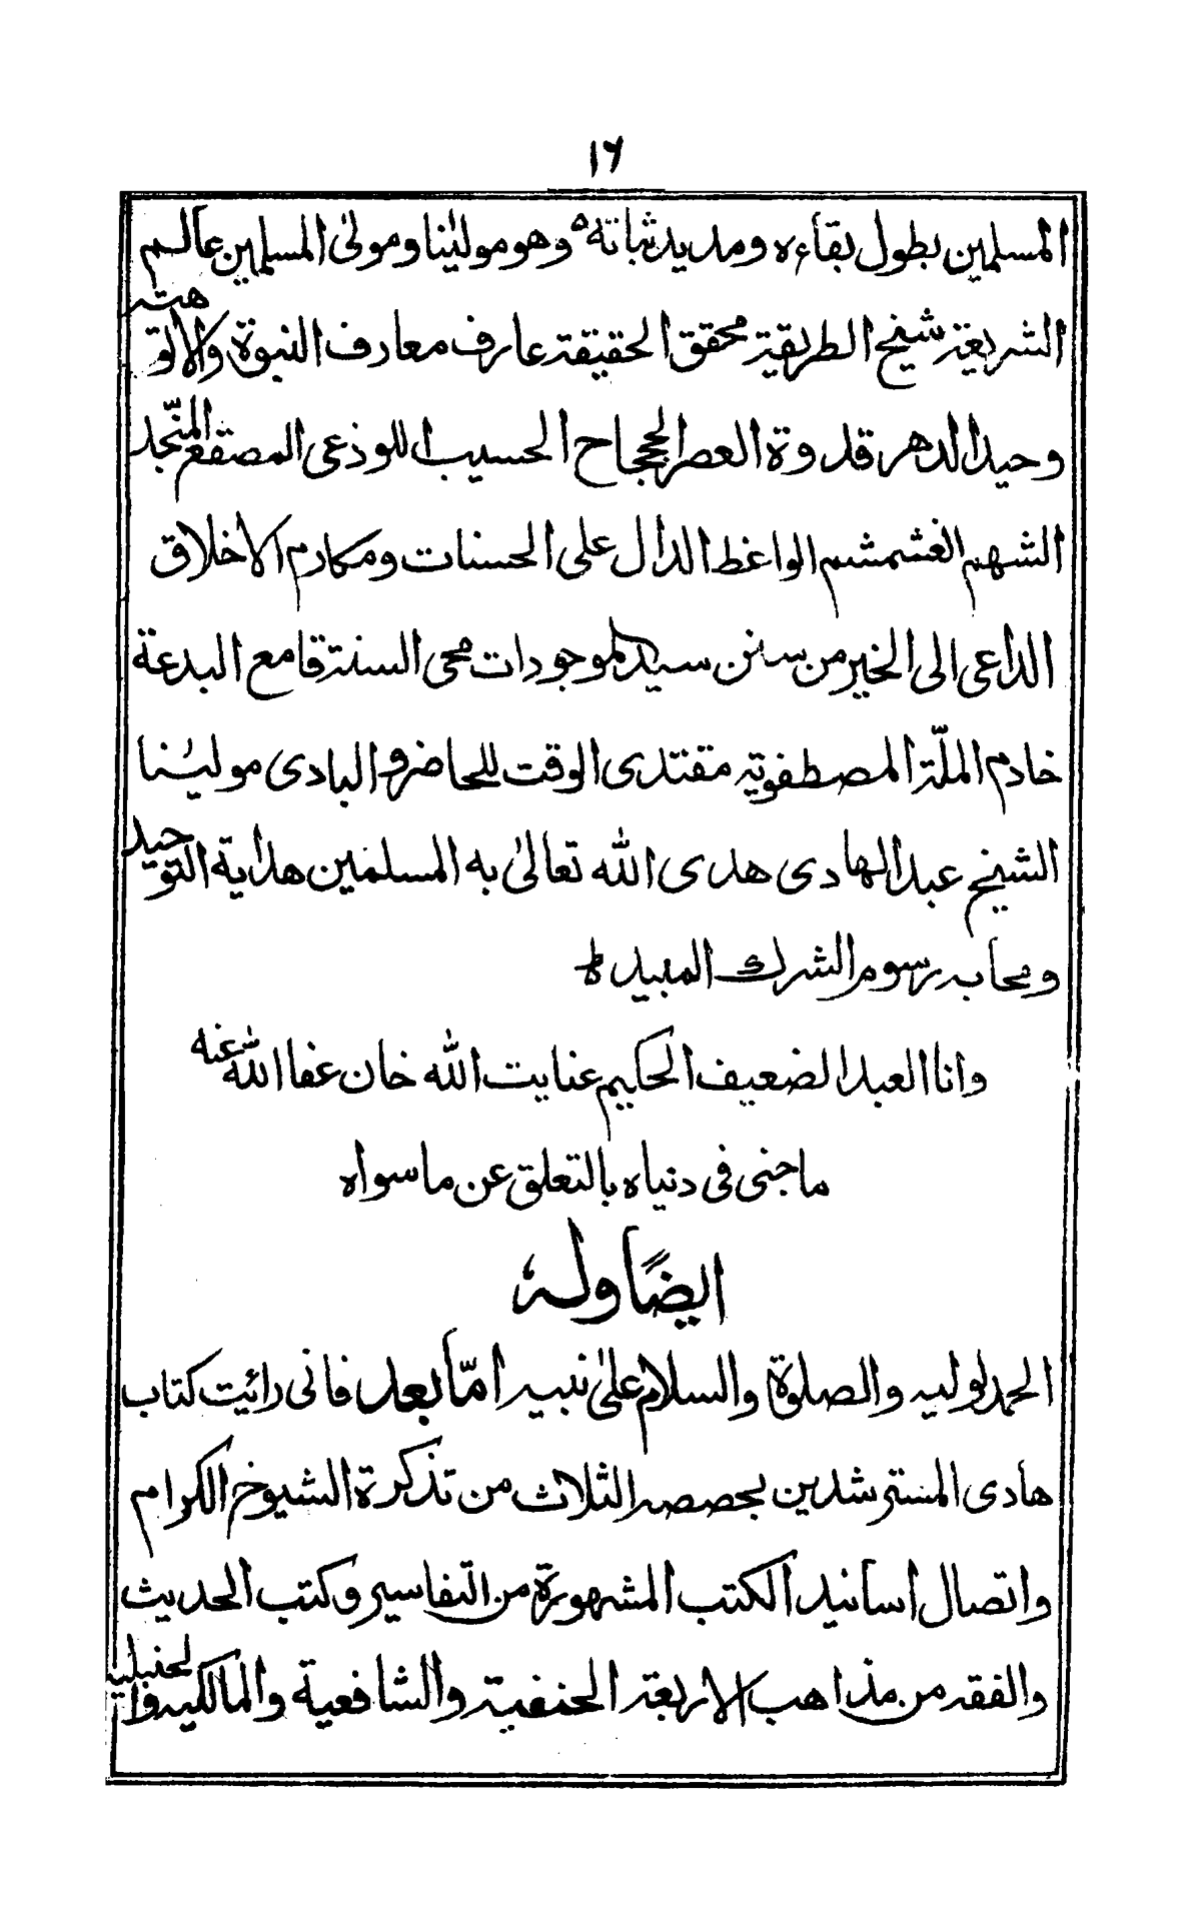 ١٦
المسلمين بطول بقاءه ومديد ثباته وهو مولٰينا ومولىٰ المسلمين عالم
الشريعة شيخ الطريقة محقق الحقيقة عارف معارف النبوة والالوهته
وحيد الدهر قدوة العصر الججاح الحسيب اللوذعى المصقع المنّجد
الشهم الغشمشم الواعظ الدال على الحسنات ومكارم الاخلاق
الداعى الى الخير من سنن سيد الموجودات محى السنة قامع البدعة
خادم الملّة المصطفوية مقتدى الوقت للحاضر والبادى مولٰينا
الشيخ عبد الهادى هدى الله تعالىٰ به المسلمين هداية التوحيد
ومحابه رسوم الشرك المبيد ه ط
وانا العبد الضعيف الحكيم عنايت الله خان عفا الله عنه
ماجنى فى دنياه بالتعلق عن ما سواه
ايضًا وله
الحمد لوليه والصلوة والسلام علىٰ نبيه امّا بعد فانى رائيت كتاب
هادى المسترشدين بحصصه الثلاث من تذكرة الشيوخ الكرام
واتصال اسانيد الكتب المشهورة من التفاسير وكتب الحديث
والفقه من مذاهب الاربعة الحنفية والشافعية والمالكيه والحنبلية